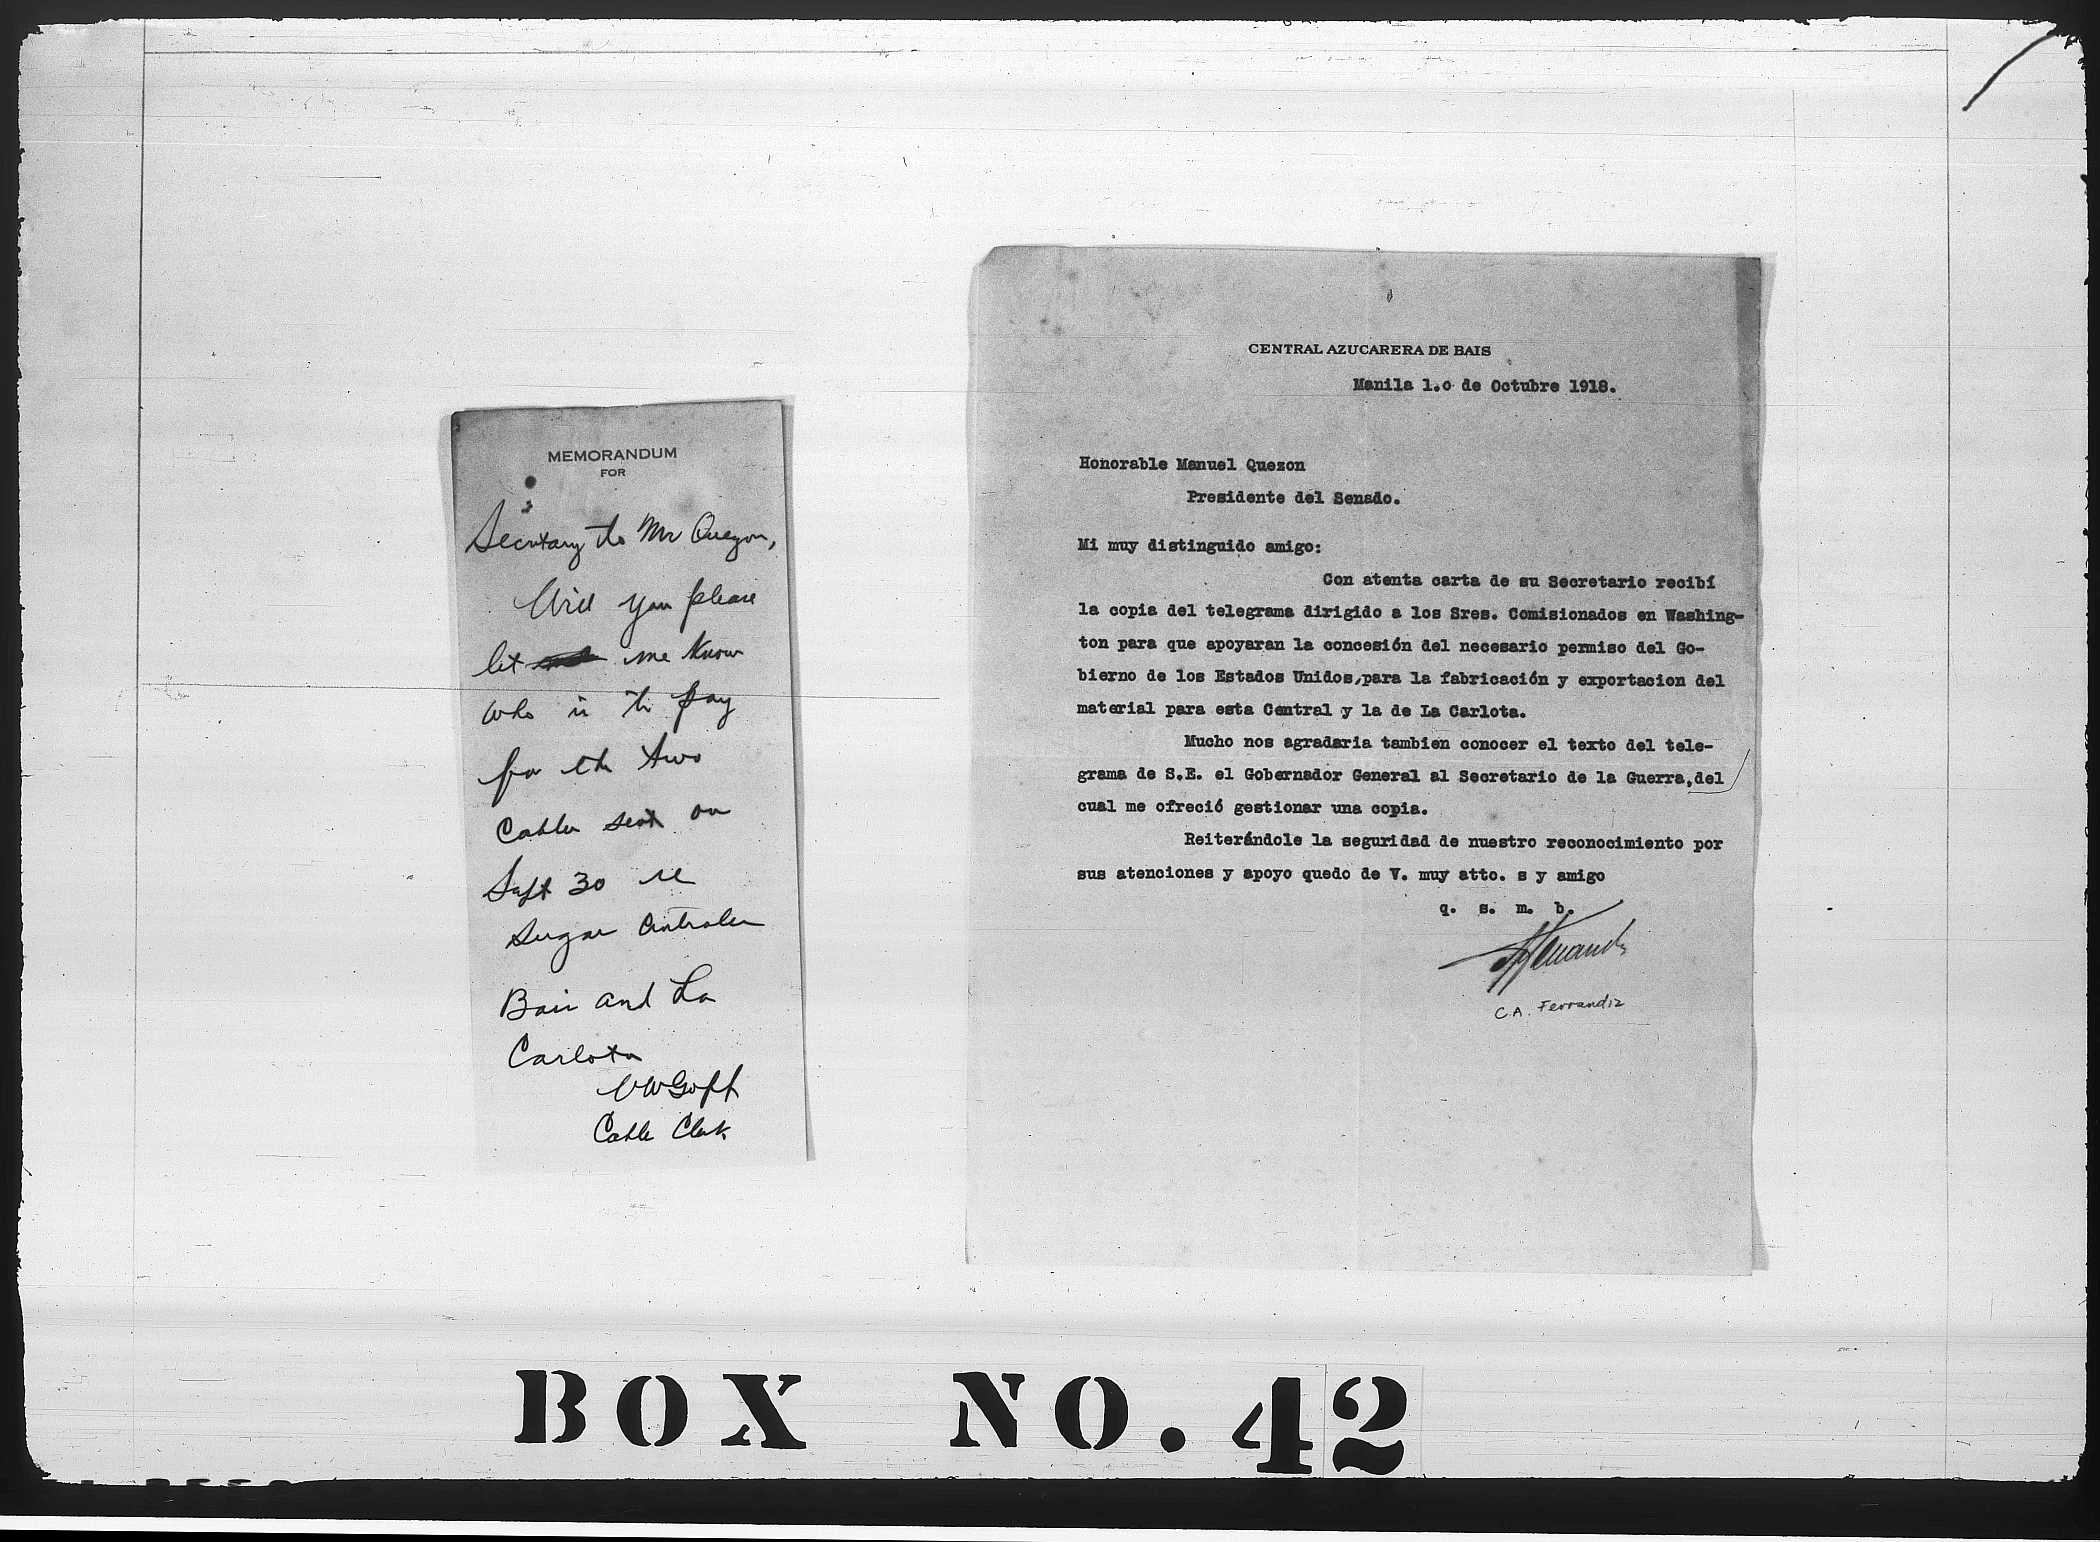 MEMORANDUM
FOR
Secretary to Mr Quezon,
Will you please
let me know
who is to pay
for the two
Cables sent on
Sept 30 re
Sugar Centrales
Bais and La
Carlota
VWGoff
Cable Clerk
CENTRAL AZUCARERA DE BAIS
Manila 1.o de Octubre 1918.
Honorable Manuel Quezon
Presidente del Senado.
Mi muy distinguido amigo:
Con atenta carta de su Secretario recibí
la copia del telegrama dirigido a los Sres. Comisionados en Washing-
ton para que apoyaran la concesión del necesario permiso del Go-
bierno de los Estados Unidos,para la fabricación y exportacion del
material para esta Central y la de La Carlota.
Mucho nos agradaria tambien conocer el texto del tele-
grama de S.E. el Gobernador General al Secretario de la Guerra,del
cual me ofreció gestionar una copia.
Reiterándole la seguridad de nuestro reconocimiento por
sus atenciones y apoyo quedo de V. muy atto. s y amigo
q. s. m. b.
C.A. Ferrandiz
BOX NO. 42